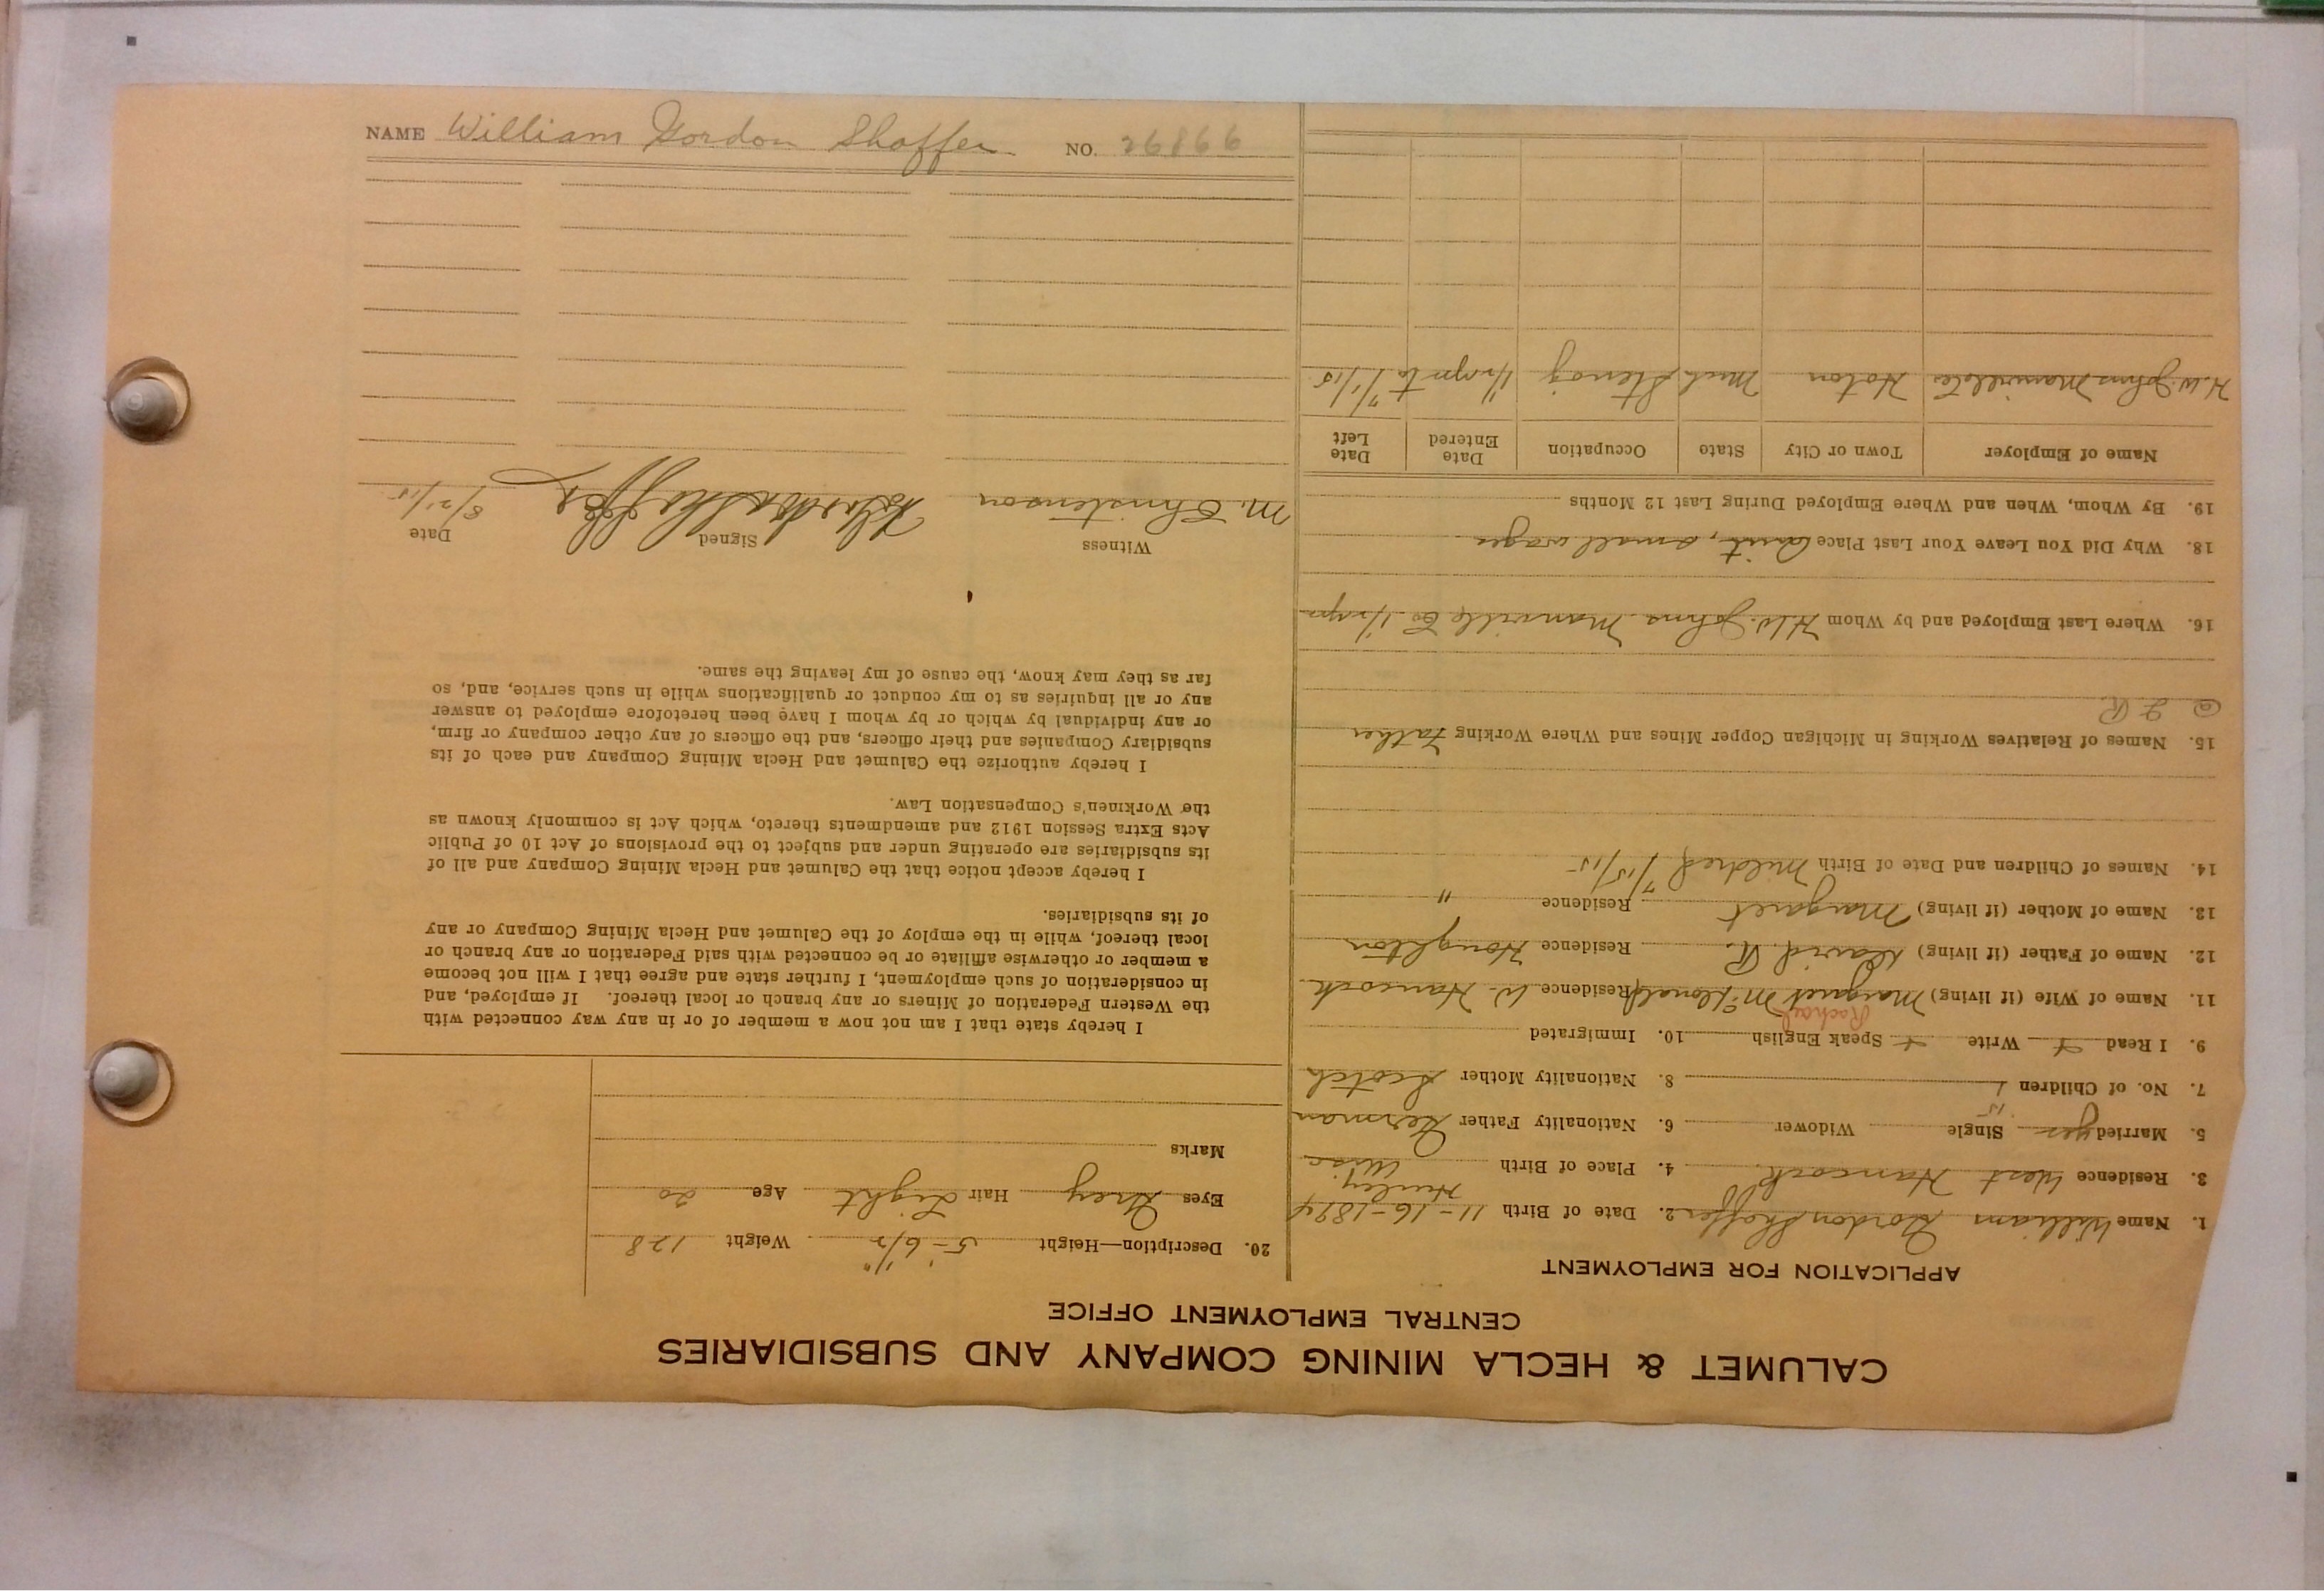 NAME William Gordon Shaffer NO. 26866
CALUMET & HECLA MINING COMPANY AND SUBSIDIARIES
CENTRAL EMPLOYMENT OFFICE
APPLICATION FOR EMPLOYMENT
1. Name William Gordon Shaffer 2. Date of Birth 11-16-1894
3. Residence West Hancock 4. Place of Birth Hurley Wisc
5. Married yes Single Widower 6. Nationality Father German
15
7. No. of Children 1 8. Nationality Mother Scotch
9. I Read + Write + Speak English 10. Immigrated
Rachael
11. Name of Wife (if living) Margaret McDonald Residence W. Hancock
12. Name of Father (if living) David R. Residence Houghton
13. Name of Mother (if living) Margaret Residence "
14. Names of Children and Date of Birth Mildred 7/15/15
15. Names of Relatives Working in Michigan Copper Mines and Where Working Father
@ Q R
16. Where Last Employed and by Whom H.W. Johns Manville Co. 1/2 yr
18. Why Did You Leave Your Last Place Quit, small wages
19. By Whom, When and Where Employed During Last 12 Months
Name of Employer Town or City State Occupation Date Entered Date Left
H.W. Johns Manville Co Hoton Mich Stenog 1/2 yr to 7/1/15
20. Description—Height 5'-6 1/2" Weight 128
Eyes Grey Hair Light Age 20
Marks
I hereby state that I am not now a member of or in any way connected with
the Western Federation of Miners or any branch or local thereof. If employed, and
in consideration of such employment, I further state and agree that I will not become
a member or otherwise affiliate or be connected with said Federation or any branch or
local thereof, while in the employ of the Calumet and Hecla Mining Company or any
of its subsidiaries.
I hereby accept notice that the Calumet and Hecla Mining Company and all of
its subsidiaries are operating under and subject to the provisions of Act 10 of Public
Acts Extra Session 1912 and amendments thereto, which Act is commonly known as
the Workmen's Compensation Law.
I hereby authorize the Calumet and Hecla Mining Company and each of its
subsidiary Companies and their officers, and the officers of any other company or firm,
or any individual by which or by whom I have been heretofore employed to answer
any or all inquiries as to my conduct or qualifications while in such service, and, so
far as they may know, the cause of my leaving the same.
Witness Signed Date
M. Christenson Gordon Shaffer 8/21/15